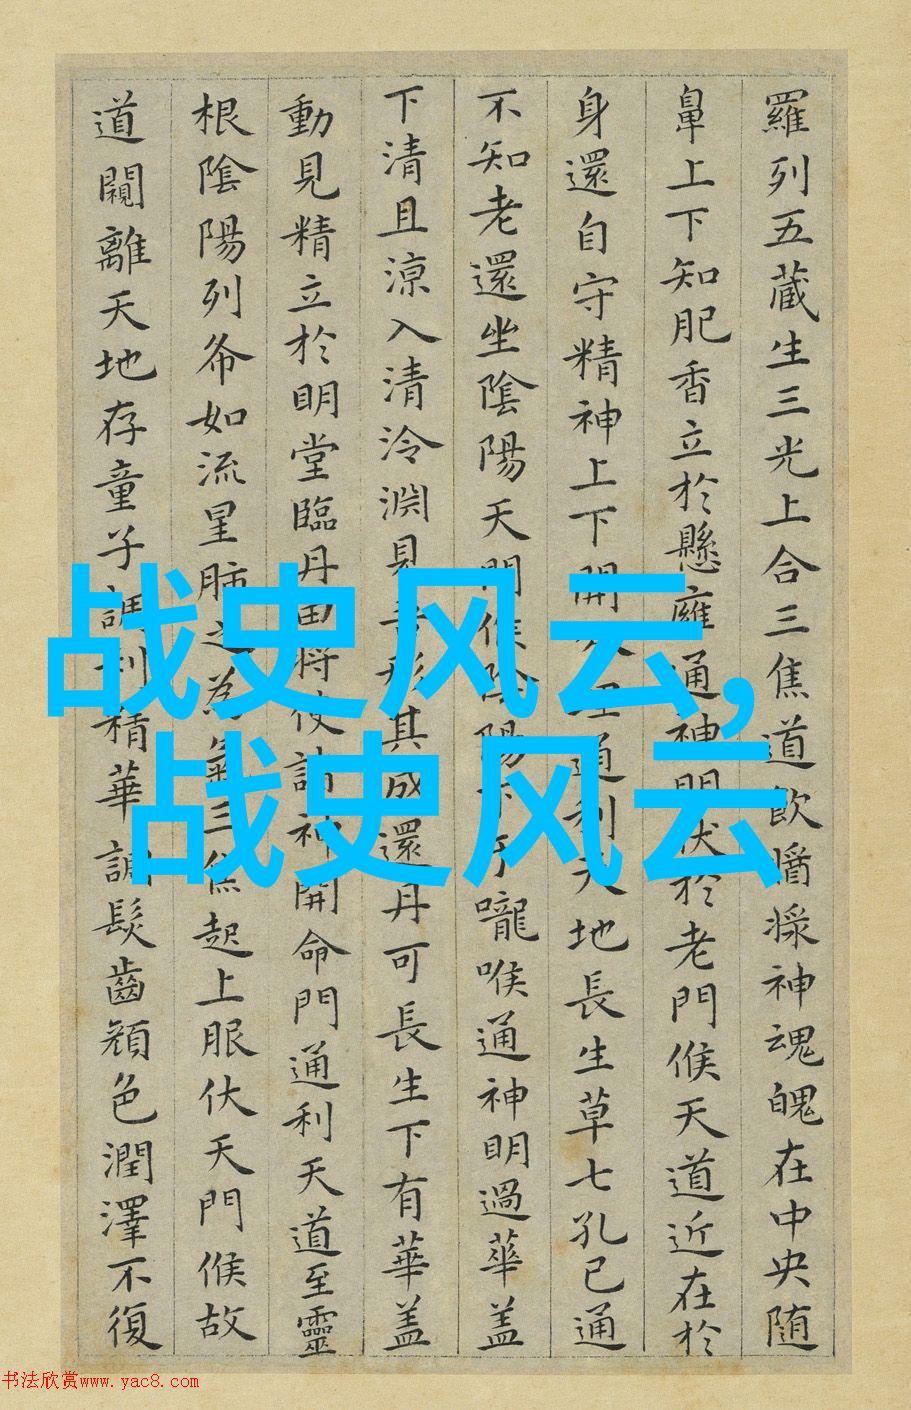 羅列五蔵生三光上合三焦道飲醬漿神魂魄在中央随
鼻上下知肥香立於懸廱通神明伏於老門候天道近在於
身還自守精神上下開 通利天地長生草七孔已通
不知老還坐陰陽天門候陰陽下于嚨喉通神明過華盖
下清且涼入清泠淵見吾形其成還丹可長生下有華盖
動見精立於明堂臨丹田将使諸神開命門通利天道至靈
根陰陽列布如流星肺之為氣三焦起上服伏天門候故
道闚離天地存童子調利精華調髮齒顔色潤澤不復
战史风云,
战史风云
书法欣赏www.yac8.com